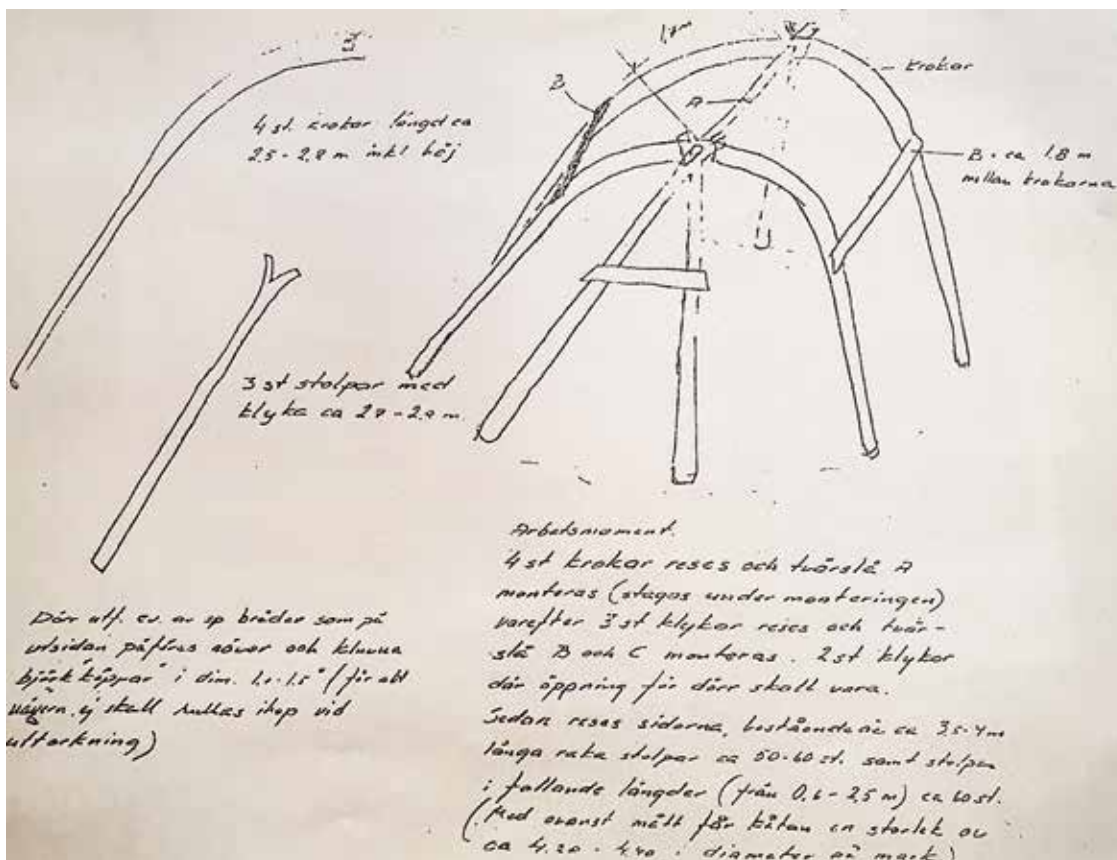 4 st. krokar längd ca
2,5 - 2,8 m inkl böj
1,8 m
B
A
krokar
B - ca 1,8 m
mellan krokarna
3 st stolpar med
klyka ca 2,8 - 2,9 m.
Dörr utf. ev. av sp bräder som på
utsidan påföras näver och kluvna
björk "käppar" i dim. 1,0-1,5" (för att
nävern ej skall rullas ihop vid
uttorkning)
Arbetsmoment.
4 st krokar reses och tvärslå A
monteras (stagas under monteringen)
varefter 3 st klykor reses och tvär-
slå B och C monteras. 2 st klykor
där öppning för dörr skall vara.
Sedan reses sidorna, bestående av ca 3,5-4 m
långa raka stolpar ca 50-60 st. samt stolpar
i fallande längder (från 0,6 - 2,5 m) ca 60 st.
(Med ovanst mått får kåtan en storlek av
ca 4.20 - 4.40 i diameter på mark)